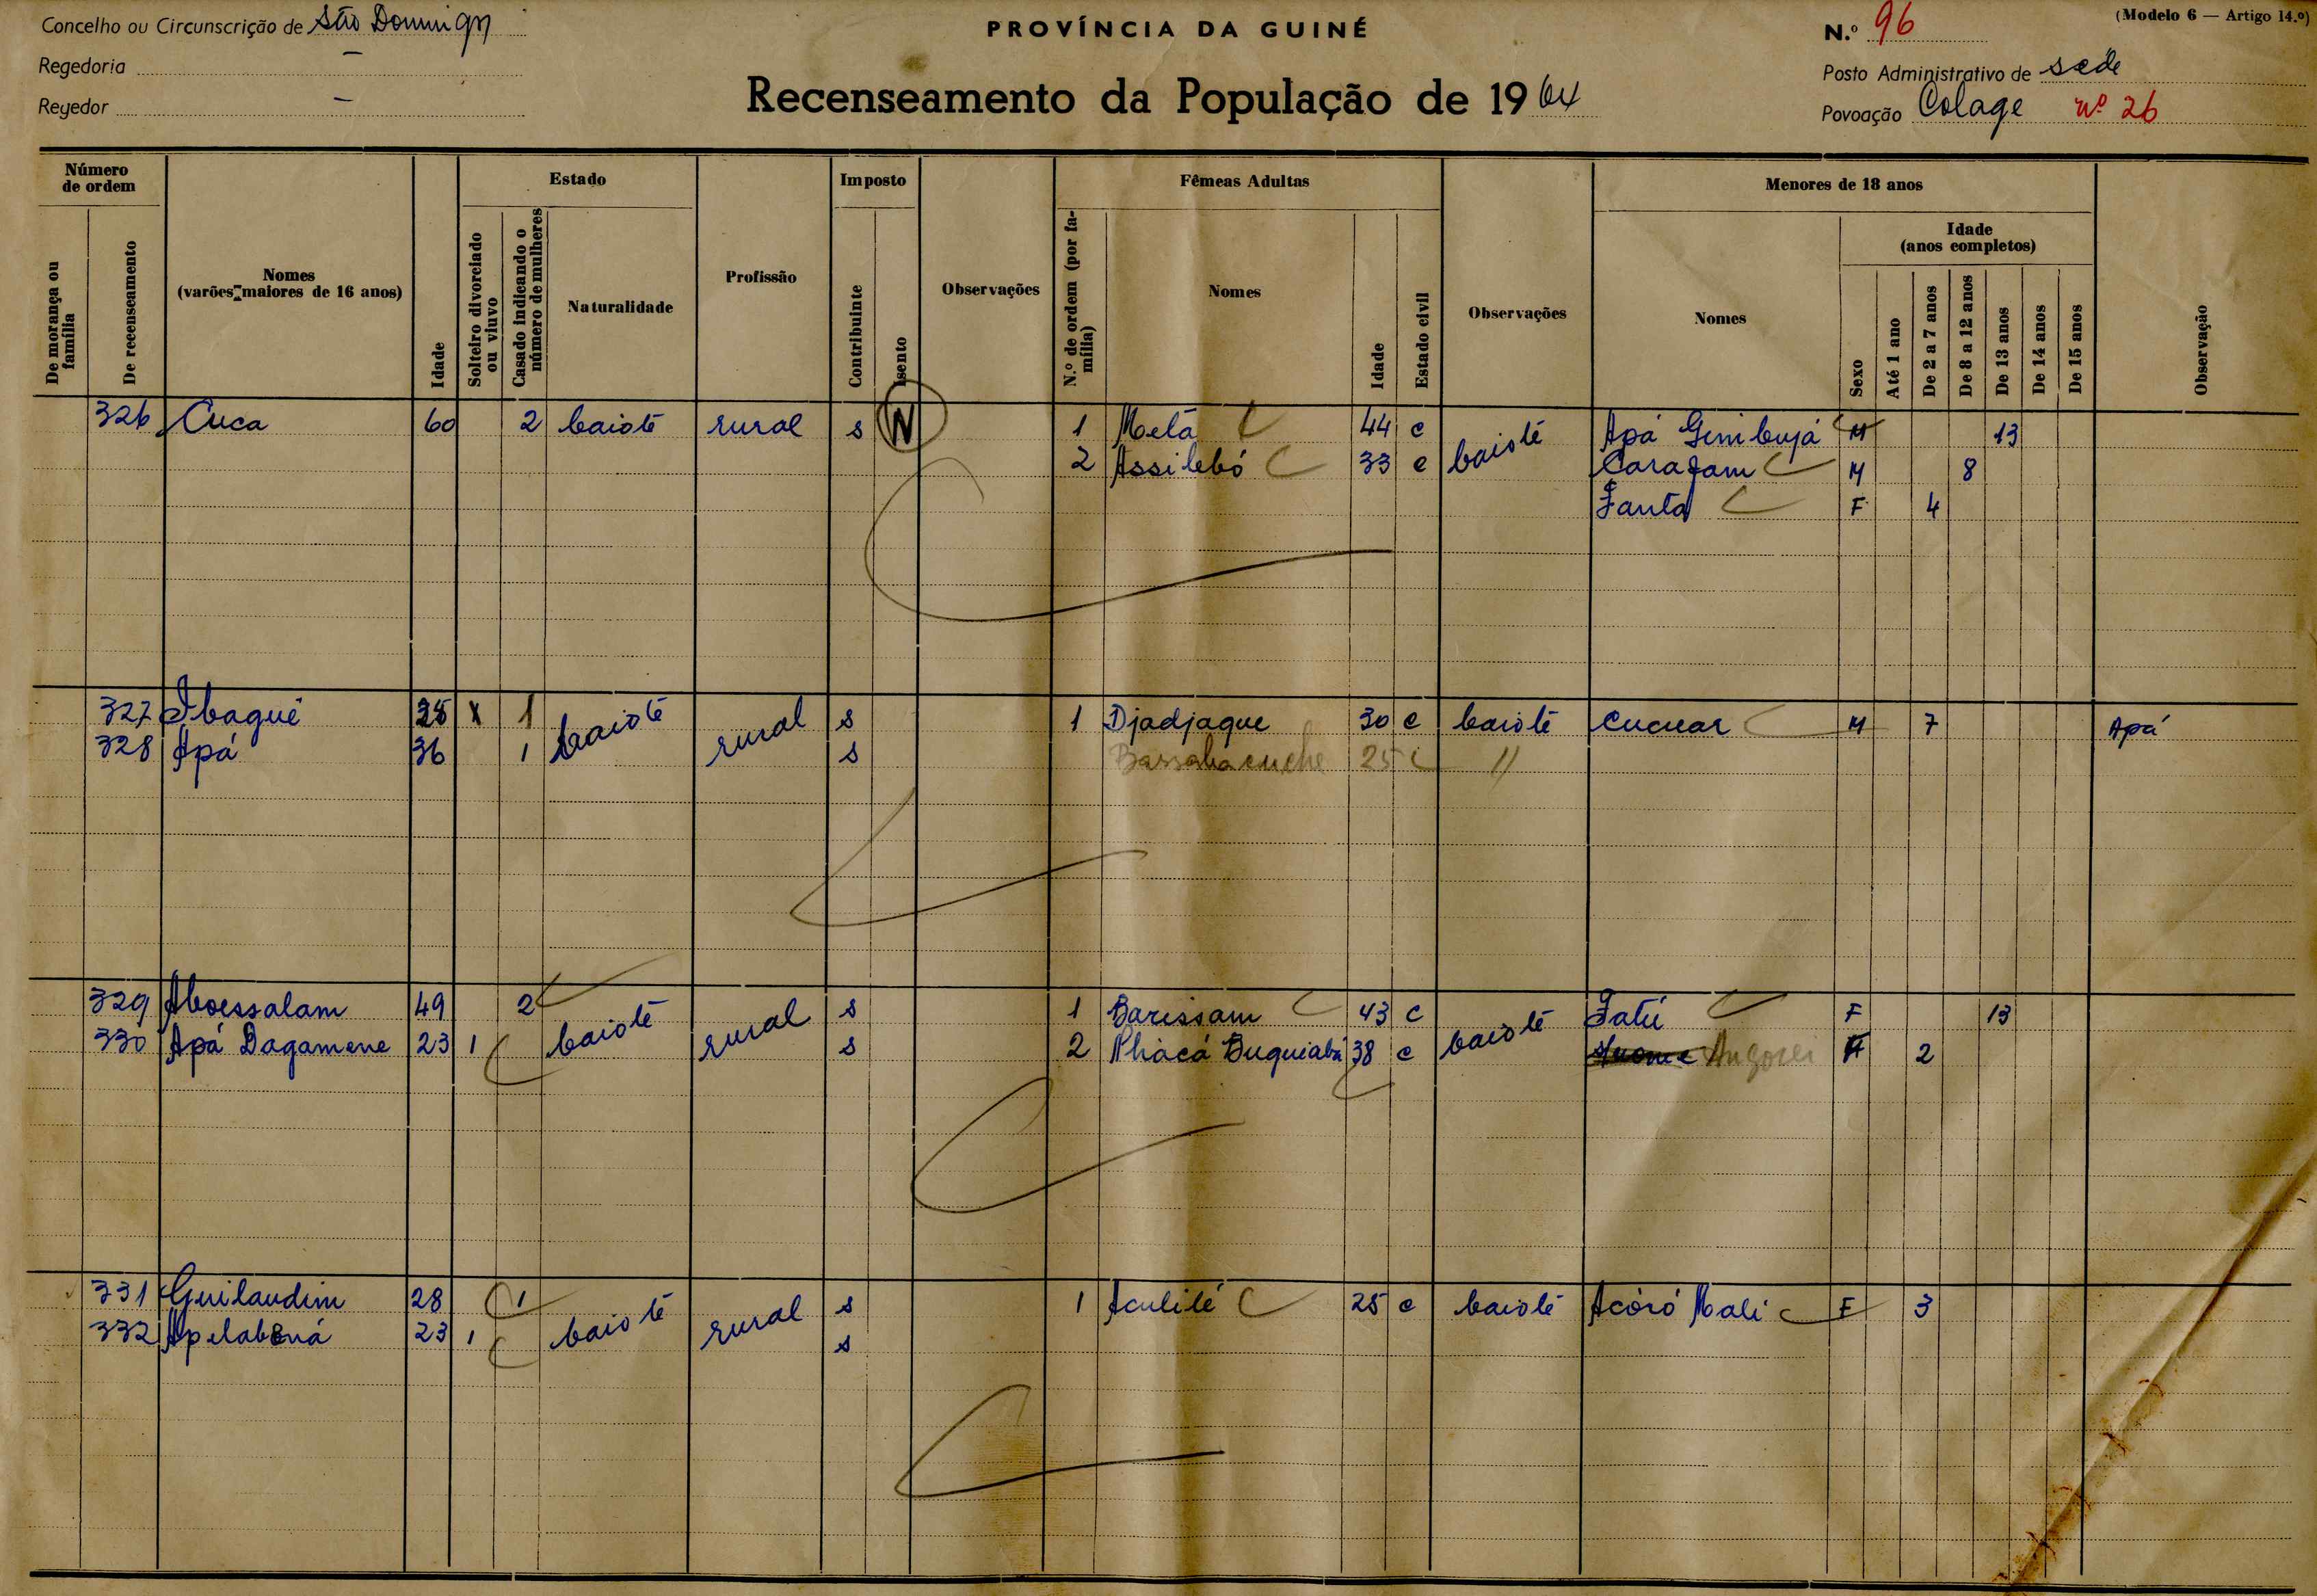 Concelho ou Circunscrição de São Domingos
PROVÍNCIA DA GUINÉ
N.º 96
(Modelo 6 — Artigo 14.º)
Regedoria —
Posto Administrativo de sede
Regedor —
Recenseamento da População de 1964
Povoação Colage nº 26
Número de ordem
De morança ou família
De recenseamento
Nomes
(varões maiores de 16 anos)
Idade
Estado
Solteiro divorciado ou viuvo
Casado indicando o número de mulheres
Naturalidade
Profissão
Imposto
Contribuinte
Isento
Observações
Fêmeas Adultas
N.º de ordem (por família)
Nomes
Idade
Estado civil
Observações
Menores de 18 anos
Nomes
Idade
(anos completos)
Sexo
Até 1 ano
De 2 a 7 anos
De 8 a 12 anos
De 13 anos
De 14 anos
De 15 anos
Observação
326 Cuca 60 2 baiote rural s N 1 Melã 44 c baiote Apá Gimbujá M 13
2 Assilebó 33 c Carafam M 8
Fanta F 4
327 Ibaguê x 1 baiote rural s 1 Djadjaque 30 c baiote Cucuar M 7 Apá
328 Apá 36 1 s Bassabacuche 25 c //
329 Aboessalam 49 2 baiote rural s 1 Barissam 43 c baiote Fatú F 13
330 Apá Dagamene 23 1 s 2 Buquiabú 38 c 2
331 Guilaudim 28 1 baiote rural s 1 Aculité 25 c baiote Acóró Mali F 3
332 Apelabená 23 1 s